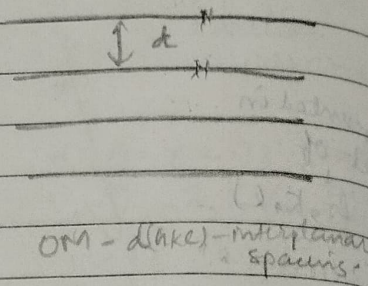 d
OM - d(hkl) - interplanar
spacing.